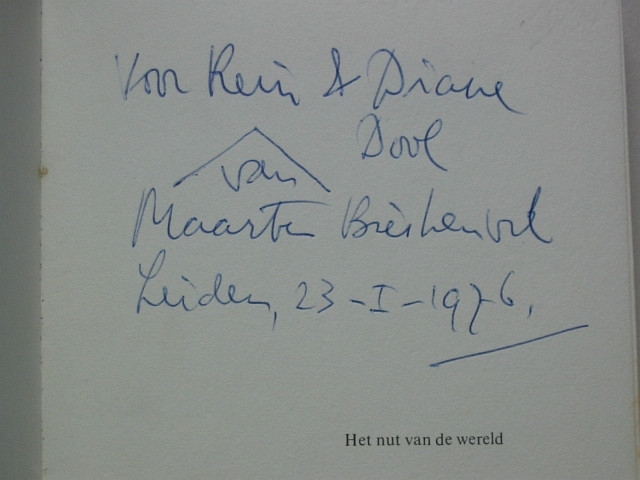 Voor Rein & Diane
Dool
van
Maarten Biesheuvel
Leiden, 23-I-1976.
Het nut van de wereld